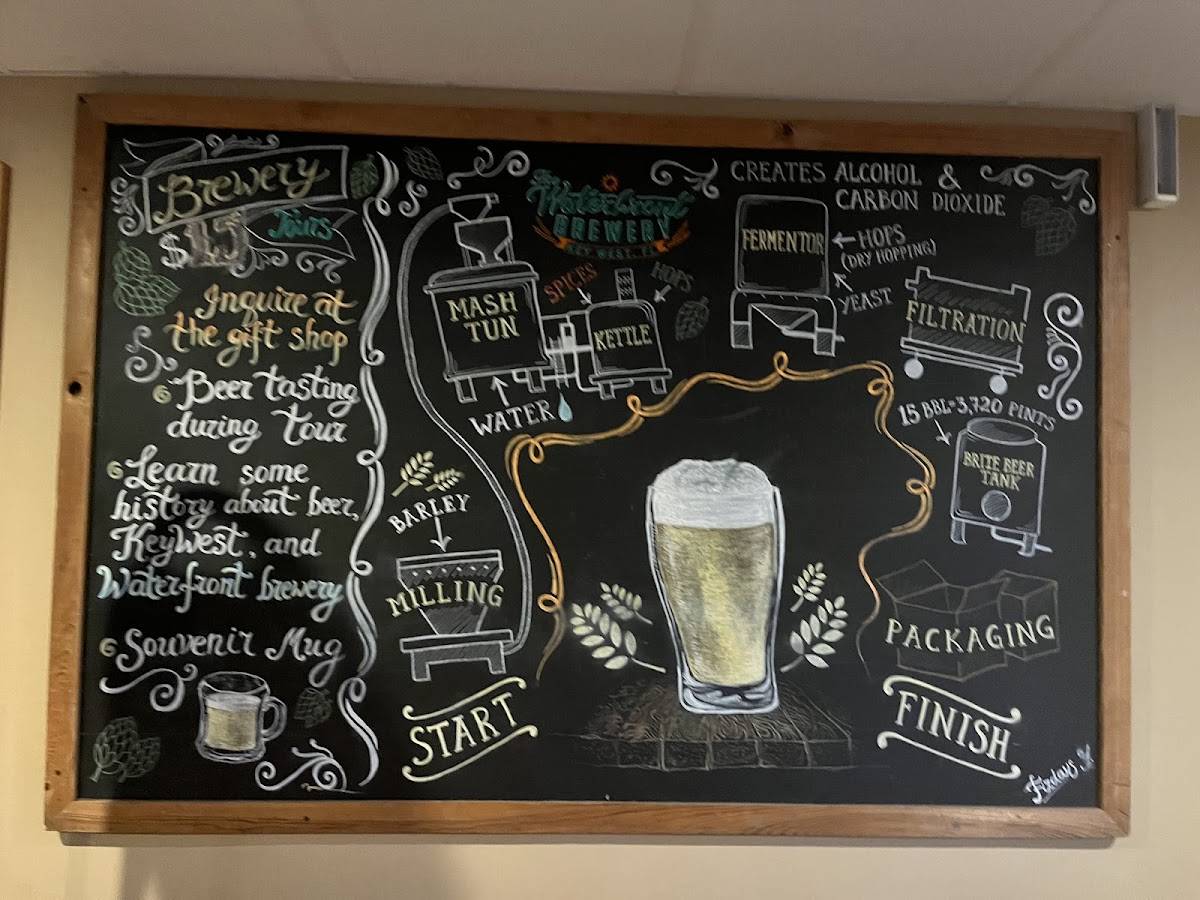 Brewery
Tours
Inquire at
the gift shop
Beer tasting
during tour
Learn some
history about beer,
Key West, and
Waterfront brewery
Souvenir Mug
The Waterfront
BREWERY
KEY WEST, FL
MASH
TUN
WATER
SPICES
HOPS
KETTLE
BARLEY
MILLING
START
CREATES ALCOHOL &
CARBON DIOXIDE
FERMENTOR
HOPS
(DRY HOPPING)
YEAST
FILTRATION
15 BBL=3,720 PINTS
BRITE BEER
TANK
PACKAGING
FINISH